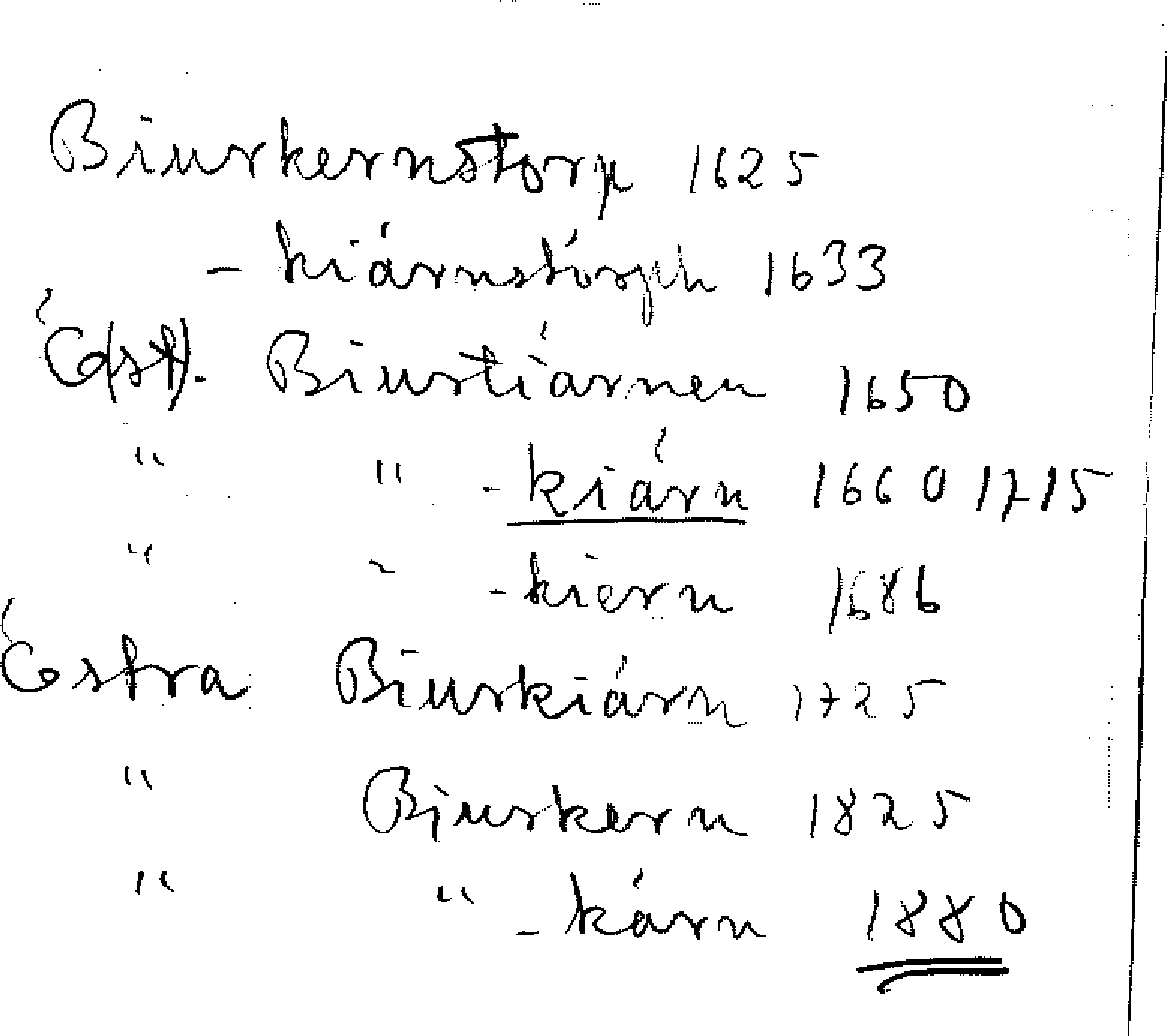 Biurkernstorp 1625
- kiärnstörph 1633
Ö(st). Biurtiärnen 1650
" " - kiärn 1660 1715
" " - kiern 1686
Östra Biurkiärn 1725
" Bjurkern 1825
" " - kärn 1880